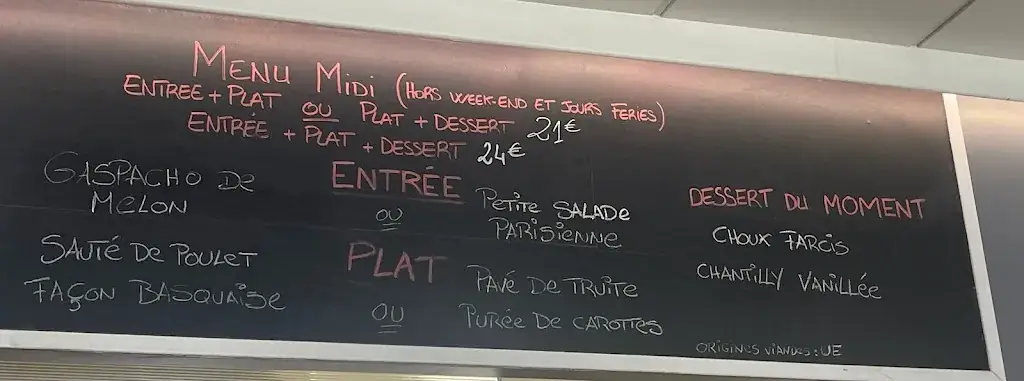 MENU MIDI (HORS WEEK-END ET JOURS FERIES)
ENTREE + PLAT OU PLAT + DESSERT 21€
ENTRÉE + PLAT + DESSERT 24€
ENTRÉE
GASPACHO DE
MELON
OU
PETITE SALADE
PARISIENNE
PLAT
SAUTÉ DE POULET
FAÇON BASQUAISE
OU
PAVÉ DE TRUITE
PURÉE DE CAROTTES
DESSERT DU MOMENT
CHOUX FARCIS
CHANTILLY VANILLÉE
ORIGINES VIANDES : UE